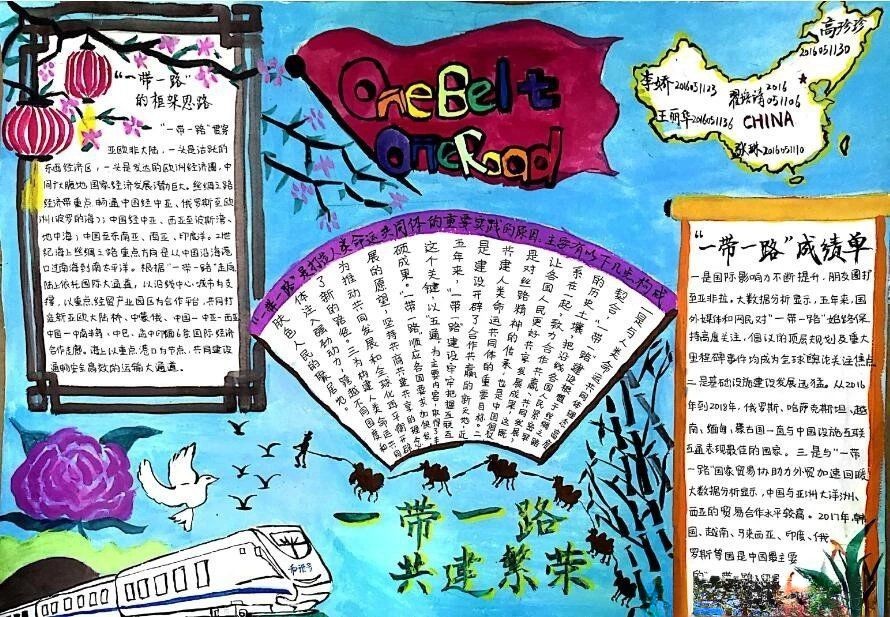 One Belt
One Road
高珍珍
2016051130
李娇 2016051123
2016
051106
王丽华 2016051136
CHINA
2016051110
"一带一路"
的框架思路
"一带一路"贯穿
亚欧非大陆,一头是活跃的
东西经济区,一头是发达的欧洲经济圈,中
间广大腹地国家经济发展潜力巨大。丝绸之路
经济带重点畅通中国经中亚、俄罗斯至欧
洲(波罗的海);中国经中亚、西亚至波斯湾、
地中海;中国至东南亚、南亚、印度洋。21世
纪海上丝绸之路重点方向是从中国沿海港
口过南海到南太平洋。根据"一带一路"走向
陆上依托国际大通道,以沿线中心城市为支
撑,以重点经贸产业园区为合作平台,共同打
造新亚欧大陆桥、中蒙俄、中国—中亚—西亚
中国—中南半岛、中巴、孟中印缅6条国际经济
合作走廊。海上以重点港口为节点,共同建设
通畅安全高效的运输大通道。
"一带一路"是打造人类命运共同体的重要实践的原因,主要有以下几点构成
一是与人类命运共同体理念高度
契合,"一带一路"建设根植于丝绸之路
的历史土壤,把沿线各国人民紧密联
系在一起,致力合作共赢、共同发展,
让各国人民更好共享发展成果,这既
是对丝路精神的传承,也是中国倡议
共建人类命运共同体的重要目标。二
是建设开辟了合作共赢的新天地,近
五年来,"一带一路"建设牢牢把握互联互通
这个关键,以"五通"为主要内容,取得了丰
硕成果。"一带一路"顺应各国要求加快发
展的愿望,坚持共商共建共享的理念
为推动共同发展和全球化再平衡开辟
了新的路径。三为构建人类命运共同
体注入强劲动力,跨越不同国度和
肤色人民的聚居地。
"一带一路"成绩单
一是国际影响力不断提升,朋友圈打
至亚非拉。大数据分析显示,五年来,国
外媒体和网民对"一带一路"始终保
持高度关注,倡议的顶层规划及重大
里程碑事件均成为全球舆论关注焦点
二是基础设施建设发展迅猛。从2016
年到2018年,俄罗斯、哈萨克斯坦、越
南、缅甸、蒙古国一直与中国设施互联
互通表现最佳的国家。三是与"一带
一路"国家贸易协助力外贸加速回暖
大数据分析显示,中国与亚洲大洋洲、
西亚的贸易合作水平较高。2017年,韩
国、越南、马来西亚、印度、俄
罗斯等国是中国最主要
的"一带一路"贸易
一带一路
共建繁荣
和谐号